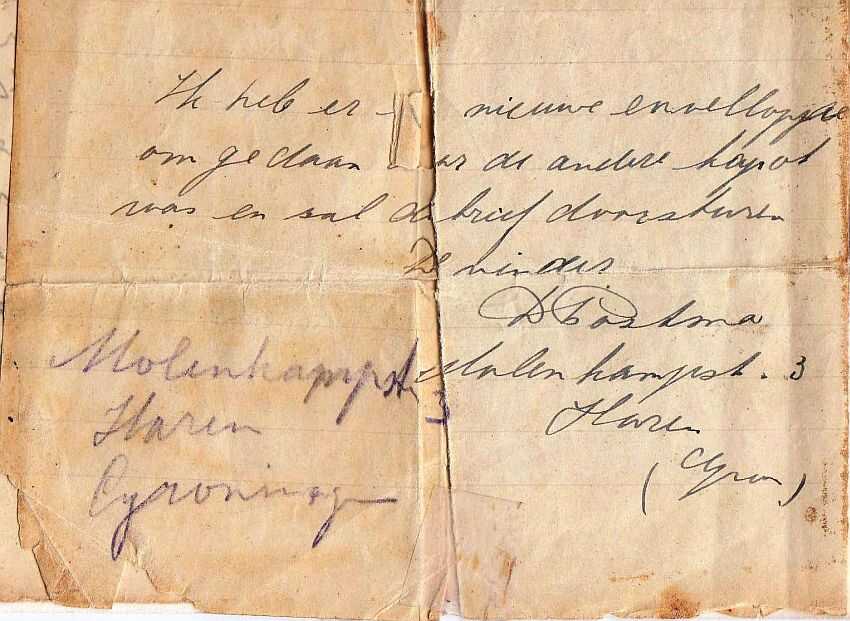 Ik heb er nieuwe envellopje
om gedaan daar de andere kapot
was en sal de brief doorsturen
De vinder
D Postma
Molenkampst. 3
Haren
(Gron)
Molenkampst 3
Haren
Groningen